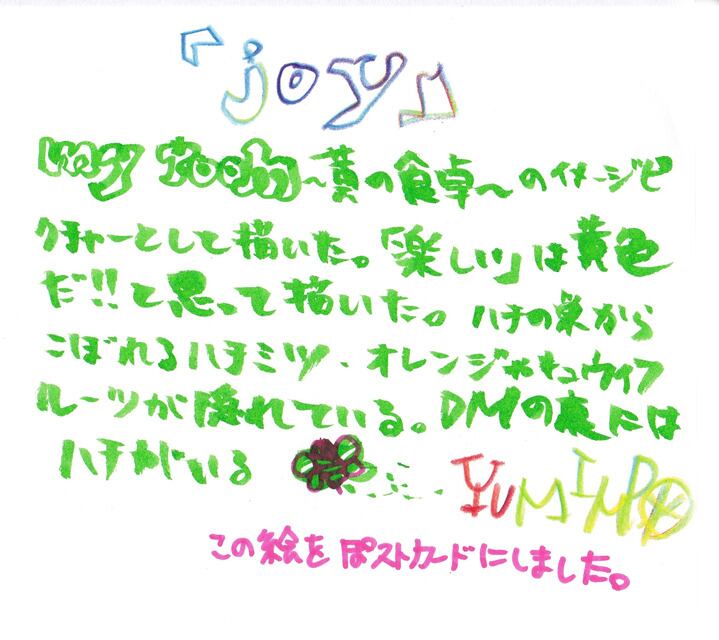 『joy』
my room～糞の食卓～のイメージピ
クチャーとして描いた。「楽しい」は黄色
だ!!と思って描いた。ハチの巣から
こぼれるハチミツ、オレンジやキュウイフ
ルーツが隠れている。DMの裏には
ハチがいる
YUMIMPO
この絵をぽストカードにしました。